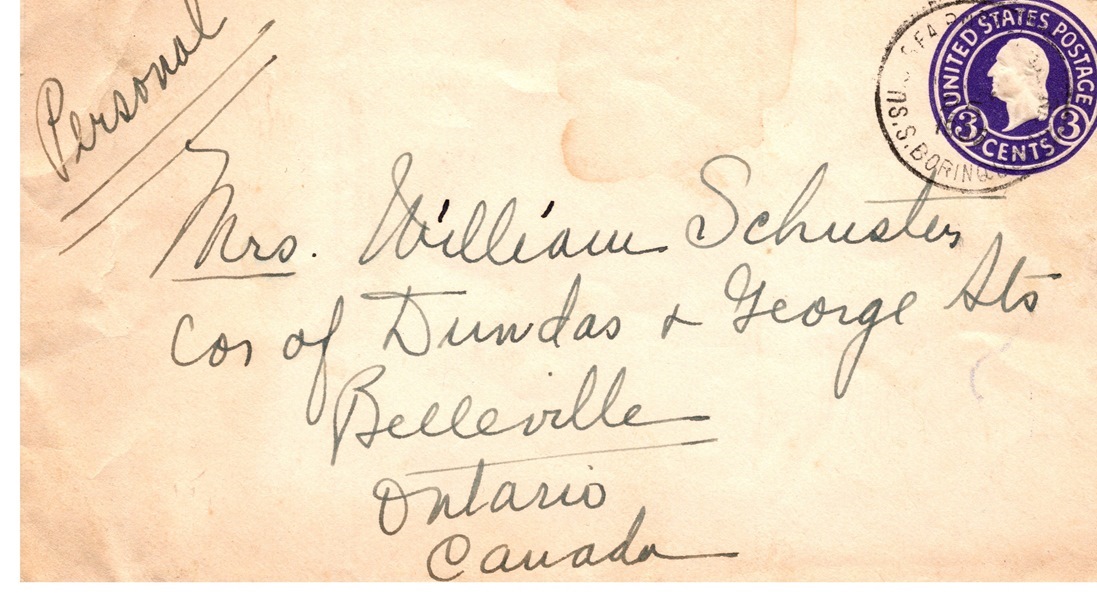 Personal
UNITED STATES POSTAGE
3 CENTS 3
U.S. SEA
U.S.S. BORINQU
Mrs. William Schuster
Cor of Dundas & George Sts
Belleville
Ontario
Canada